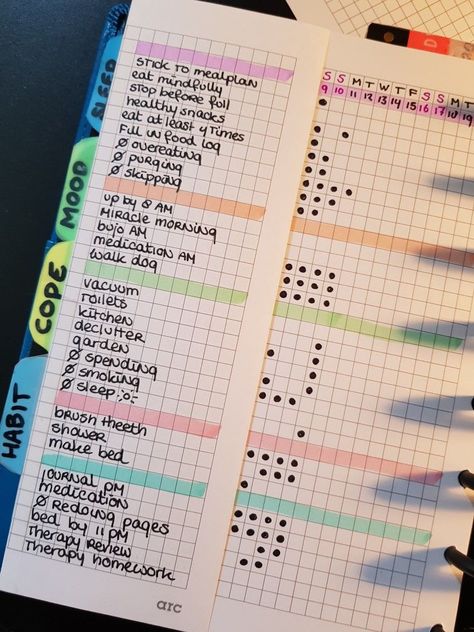 SLEEP
MOOD
COPE
HABIT
STICK TO MEALPLAN
eat mindfully
STOP before full
healthy snacks
eat at least 4 times
Fill in food log
Ø overeating
Ø purging
Ø skipping
up by 8 AM
MIRACLE MORNING
bujo AM
medication AM
walk dog
vacuum
toilets
kitchen
declutter
garden
Ø spending
Ø smoking
Ø sleep
brush theeth
shower
make bed
journal PM
medication
Ø Redoing pages
bed by 11 PM
Therapy Review
Therapy homework
arc
D
S S M T W T F S S M T
9 10 11 12 13 14 15 16 17 18 19